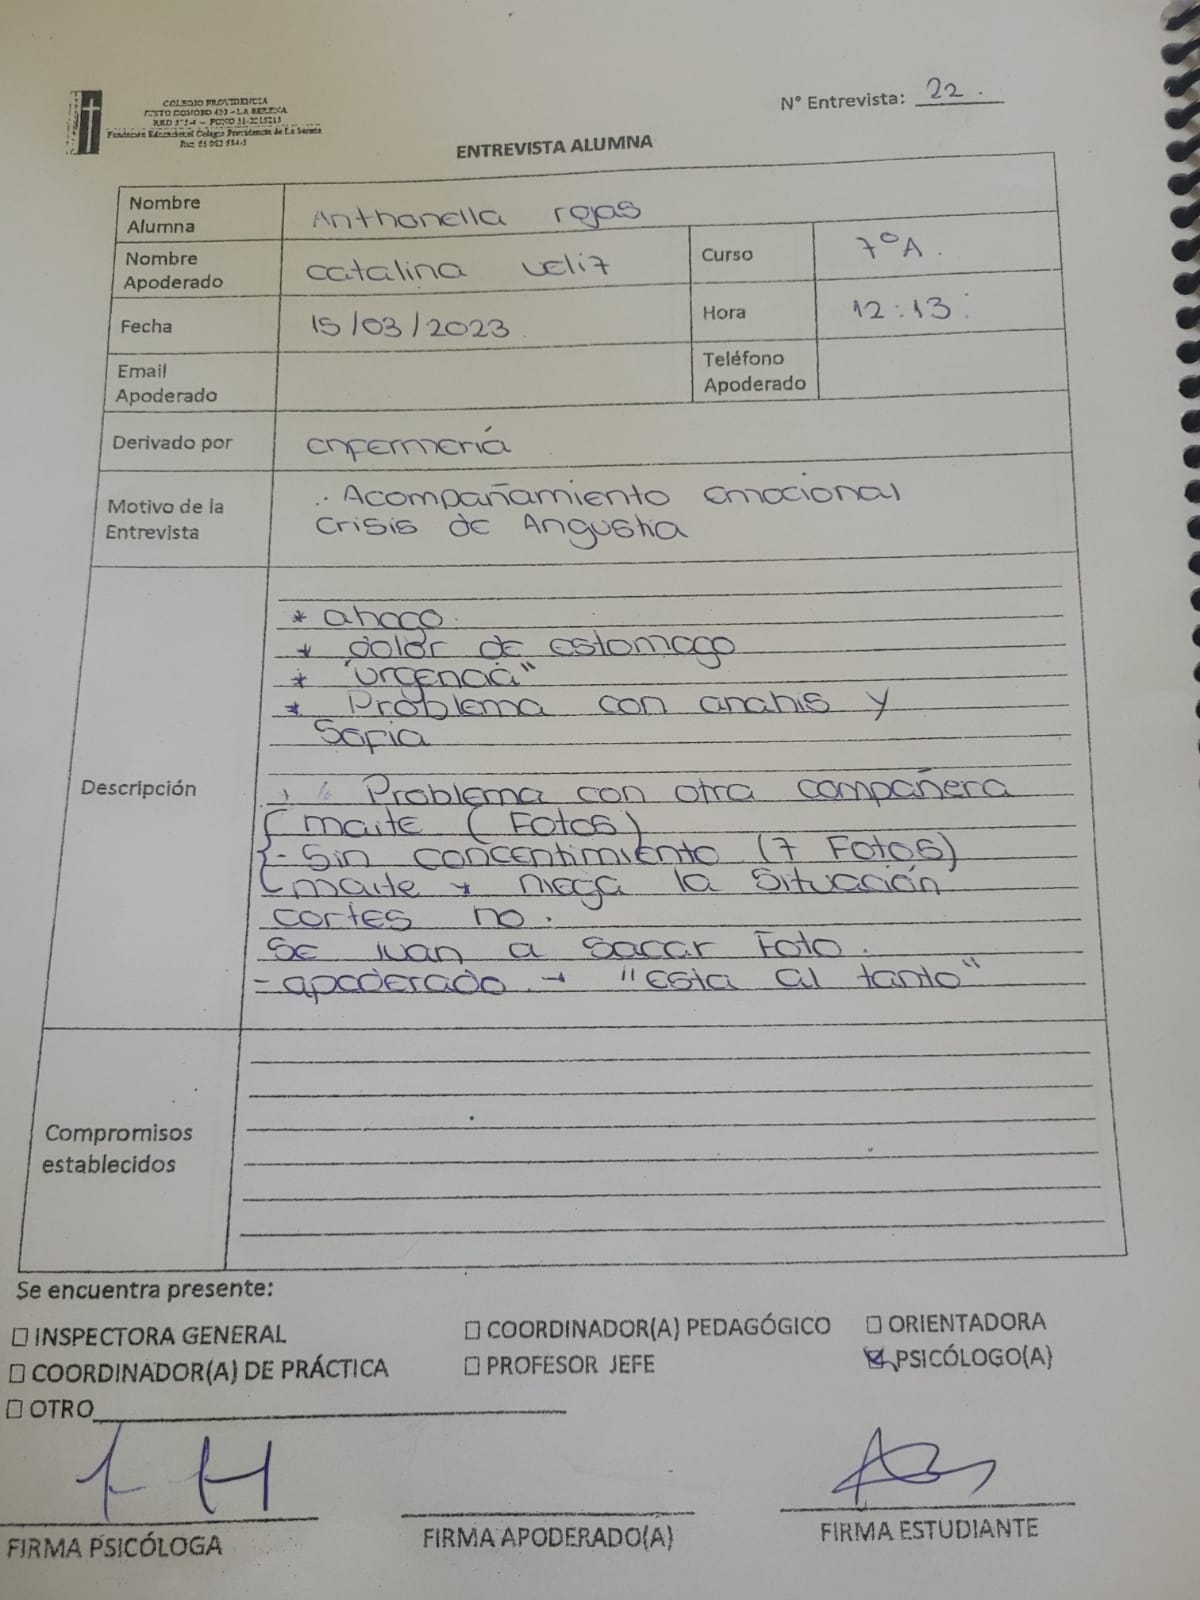 COLEGIO PROVIDENCIA
JUSTO DONOSO 420 - LA SERENA
Fundación Educacional Colegio Providencia de La Serena
N° Entrevista: 22.
ENTREVISTA ALUMNA
Nombre Alumna Anthonella rojas
Nombre Apoderado catalina veliz Curso 7°A.
Fecha 15/03/2023. Hora 12:13
Email Apoderado Teléfono Apoderado
Derivado por enfermería
Motivo de la Entrevista
Acompañamiento emocional
crisis de Angustia
Descripción
* ahogo.
* dolor de estomago
* "urgencia"
* Problema con anahis y
Sofia
Problema con otra compañera
maite (Fotos)
- Sin concentimiento (7 Fotos)
maite * niega la Situcación
cortes no.
se ivan a sacar Foto.
- apoderado. → "esta al tanto"
Compromisos establecidos
Se encuentra presente:
INSPECTORA GENERAL COORDINADOR(A) PEDAGÓGICO ORIENTADORA
COORDINADOR(A) DE PRÁCTICA PROFESOR JEFE PSICÓLOGO(A)
OTRO
FIRMA PSICÓLOGA FIRMA APODERADO(A) FIRMA ESTUDIANTE